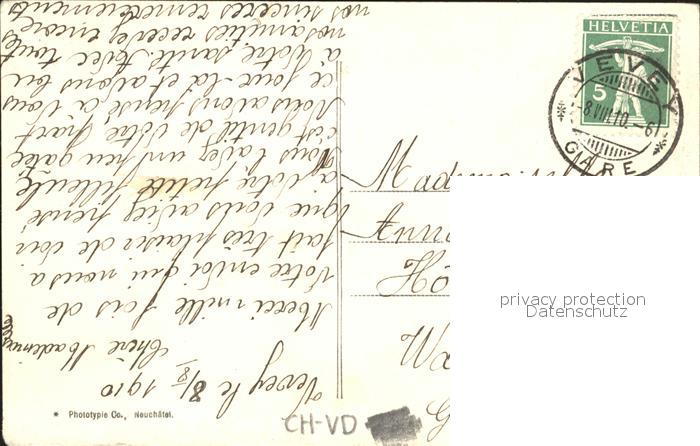 Vevey le 8/8 1910
Chère Mademoi
Merci mille fois de
Votre envoi qui nous a
fait très plaisir de voir
que vous aviez pensé
à votre petite filleule
Vous laisser un peu
c'est gentil de votre part
Nous avons pensé à vous
ce jour-là et avons bu
à Votre santé. Avec toutes
nos amitiés recevez encore
nos sincères remerciements
HELVETIA
5
VEVEY
-8.VIII.10.-6
GARE
Mademoise
Anna
Hô
Wa
privacy protection
Datenschutz
* Phototypie Co., Neuchâtel.
CH-VD